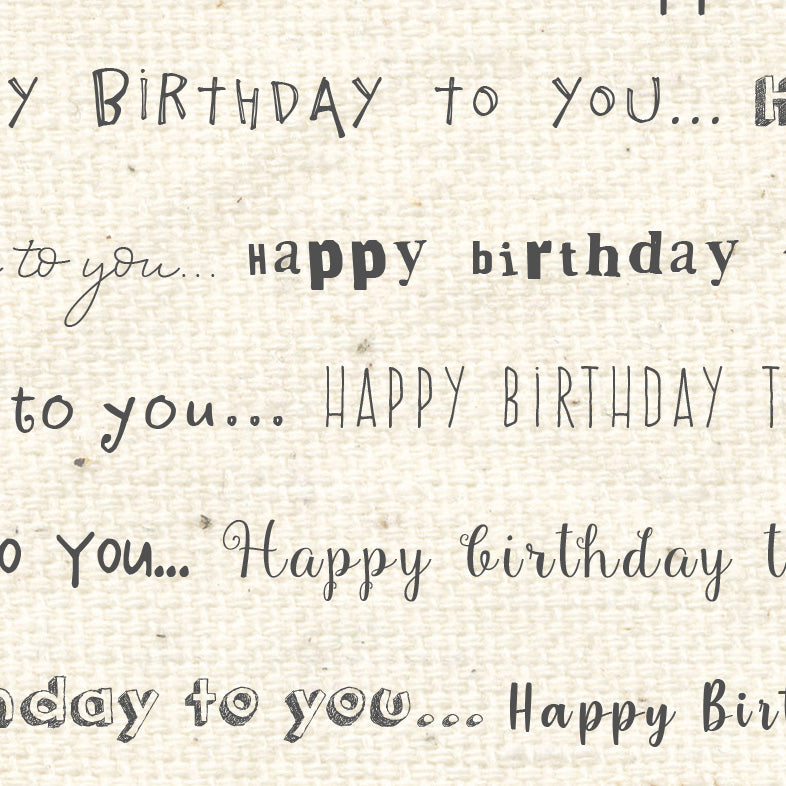 Y BiRTHDAY to YOU... H
to you... Happy birthday
to you... HAPPY BiRTHDAY T
o You... Happy birthday t
nday to you... Happy Birt